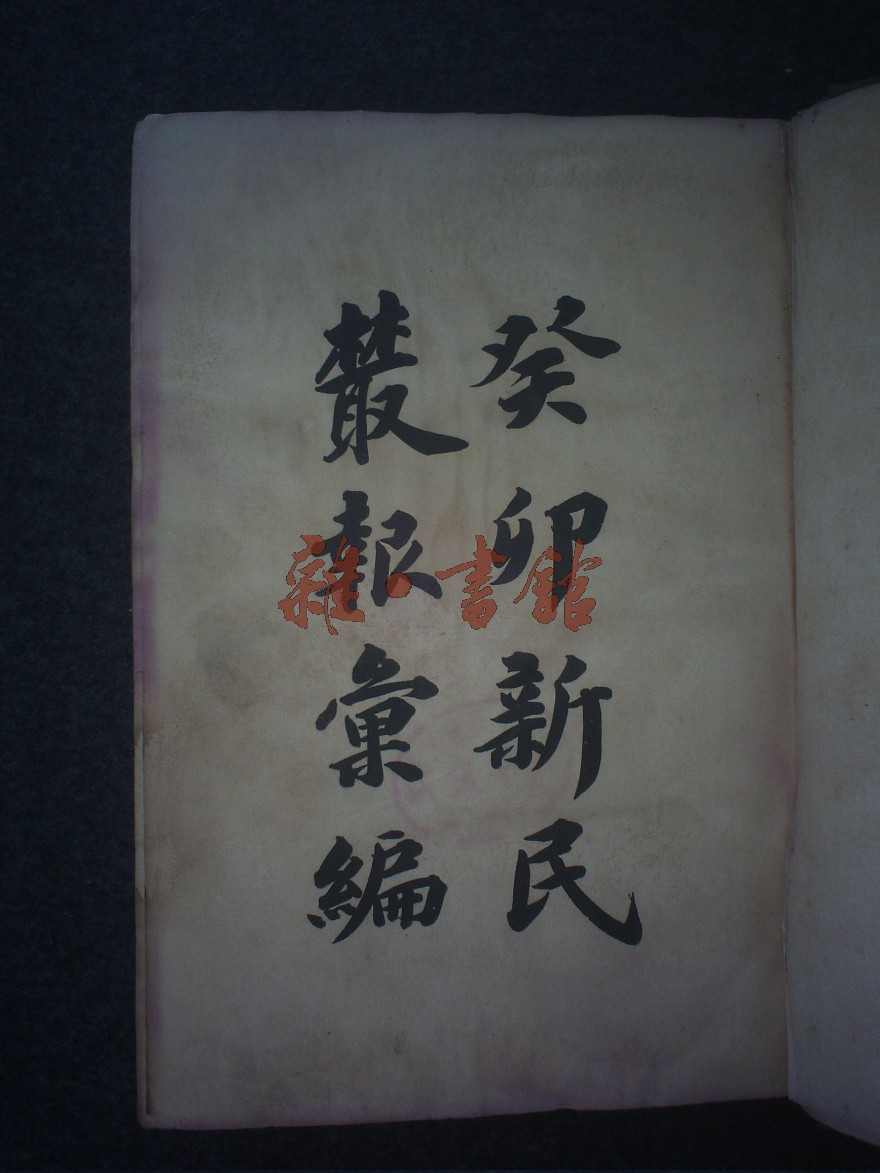 癸卯新民
叢報彙編
雜·書館